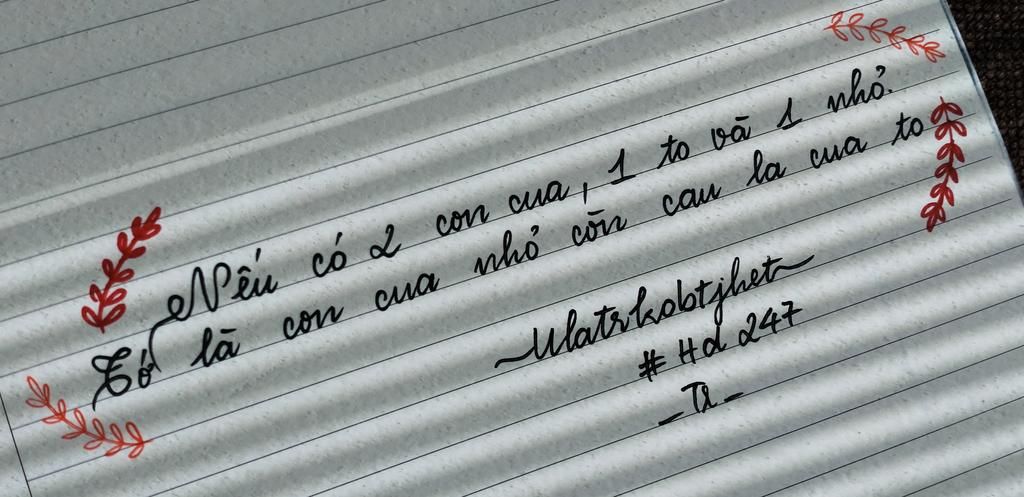 Nếu có 2 con cua, 1 to và 1 nhỏ.
Tớ là con cua nhỏ còn cau la cua to
Ulatrkobtjhet
# Hd 247
_Tr_